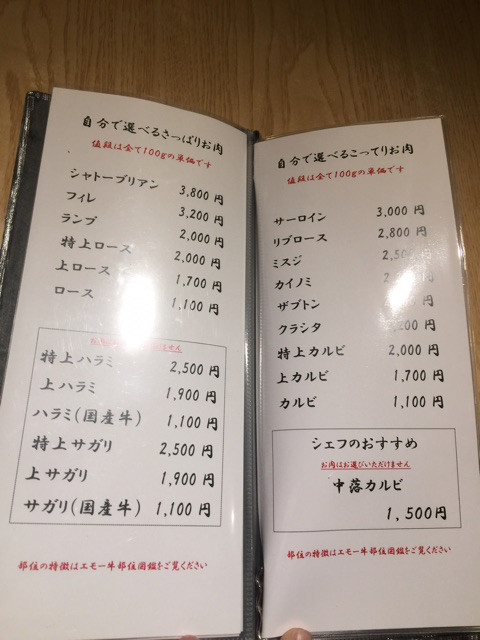 自分で選べるさっぱりお肉
値段は全て100gの単価です
シャトーブリアン 3,800 円
フィレ 3,200 円
ランプ 2,000 円
特上ロース 2,000 円
上ロース 1,700 円
ロース 1,100 円
ません
特上ハラミ 2,500 円
上ハラミ 1,900 円
ハラミ(国産牛) 1,100 円
特上サガリ 2,500 円
上サガリ 1,900 円
サガリ(国産牛) 1,100 円
部位の特徴はエモー牛部位図鑑をご覧ください
自分で選べるこってりお肉
値段は全て100gの単価です
サーロイン 3,000 円
リブロース 2,800 円
ミスジ 円
カイノミ 円
ザブトン 円
クラシタ 円
特上カルビ 2,000 円
上カルビ 1,700 円
カルビ 1,100 円
シェフのおすすめ
お肉はお選びいただけません
中落カルビ
1,500円
部位の特徴はエモー牛部位図鑑をご覧ください